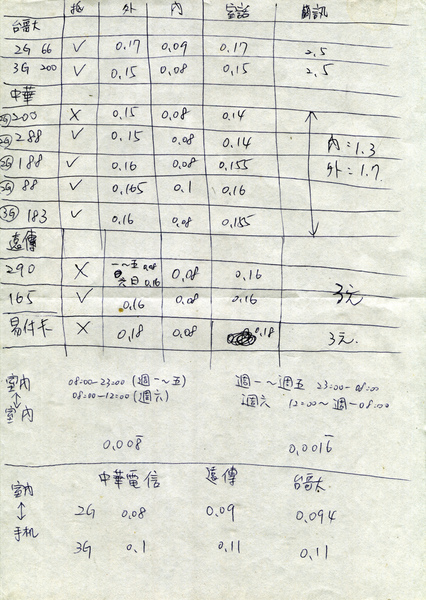 抵 外 內 室話 簡訊
台哥大
2G 66 ✓ 0.17 0.09 0.17 2.5
3G 200 ✓ 0.15 0.08 0.15 2.5
中華
2G 200 X 0.15 0.08 0.14
2G 288 ✓ 0.15 0.08 0.14 內:1.3
2G 188 ✓ 0.16 0.08 0.155 外:1.7
2G 88 ✓ 0.165 0.1 0.16
3G 183 ✓ 0.16 0.08 0.155
遠傳
290 X 一~五 0.08 0.08 0.16
六日 0.16
165 ✓ 0.16 0.08 0.16 3元
易付卡 X 0.18 0.08 0.18 3元.
室內 08:00-23:00 (週一~五) 週一~週五 23:00-08:00
↕ 08:00-12:00 (週六) 週六 12:00~週一08:00
室內
0.008 0.0016
中華電信 遠傳 台哥大
室內
↕ 2G 0.08 0.09 0.094
手机
3G 0.1 0.11 0.11